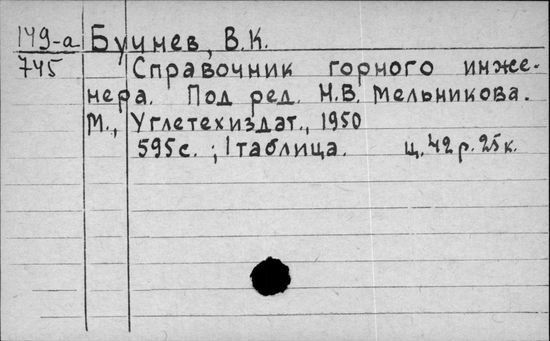 149-а Бучнев, В.К.
745 Справочник горного инже-
нера. Под ред. Н.В. Мельникова.
М., Углетехиздат., 1950
595с. ; 1 таблица. ц. 42 р. 25 к.